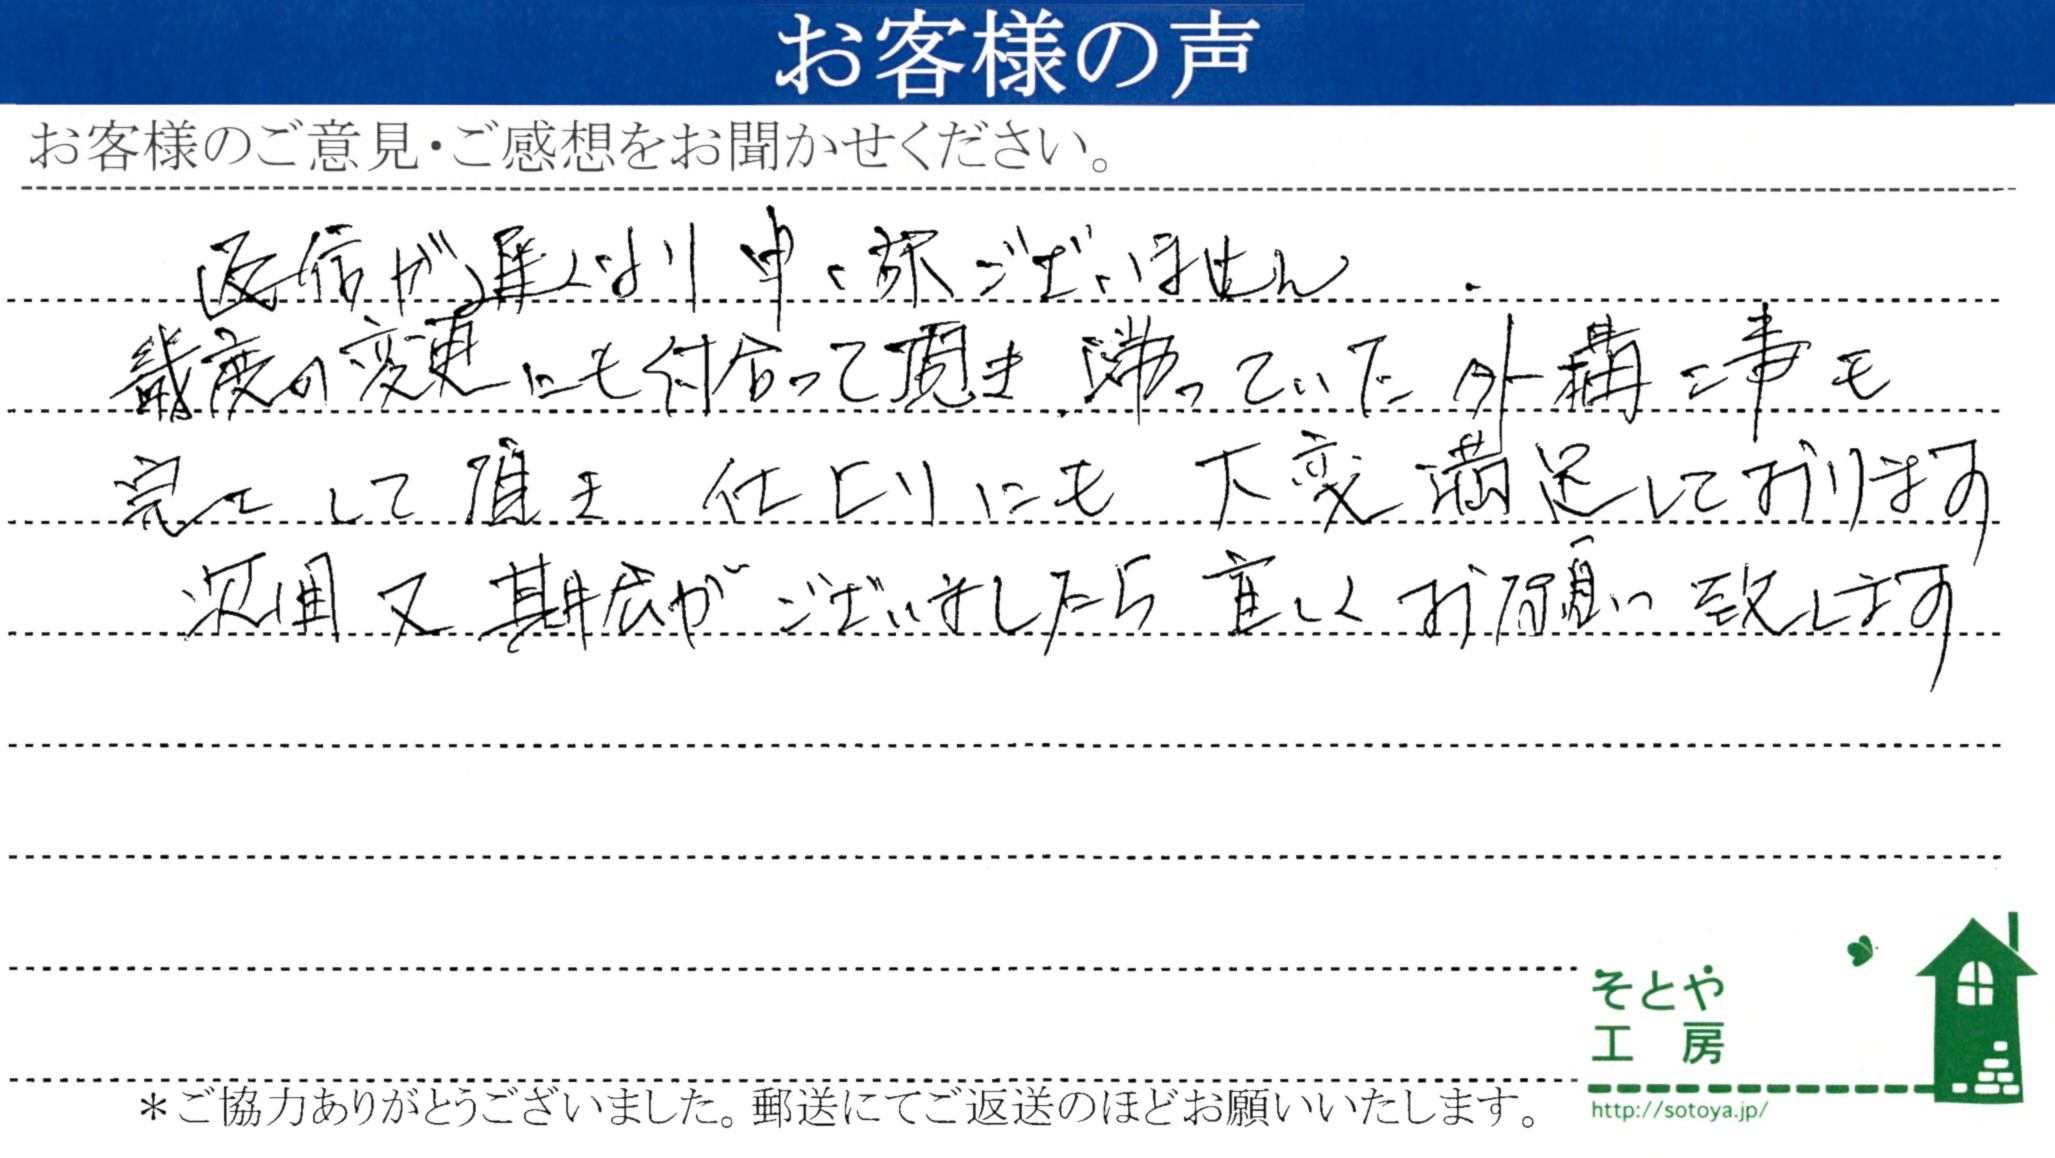 お客様の声
お客様のご意見・ご感想をお聞かせください。
返信が遅くなり申し訳ございません
幾度の変更にも付合って頂き 滞っていた外構工事も
完工して頂き 仕上りにも 大変満足しております
次回又 機会がございましたら 宜しくお願い致します
そとや
工房
http://sotoya.jp/
＊ご協力ありがとうございました。郵送にてご返送のほどお願いいたします。